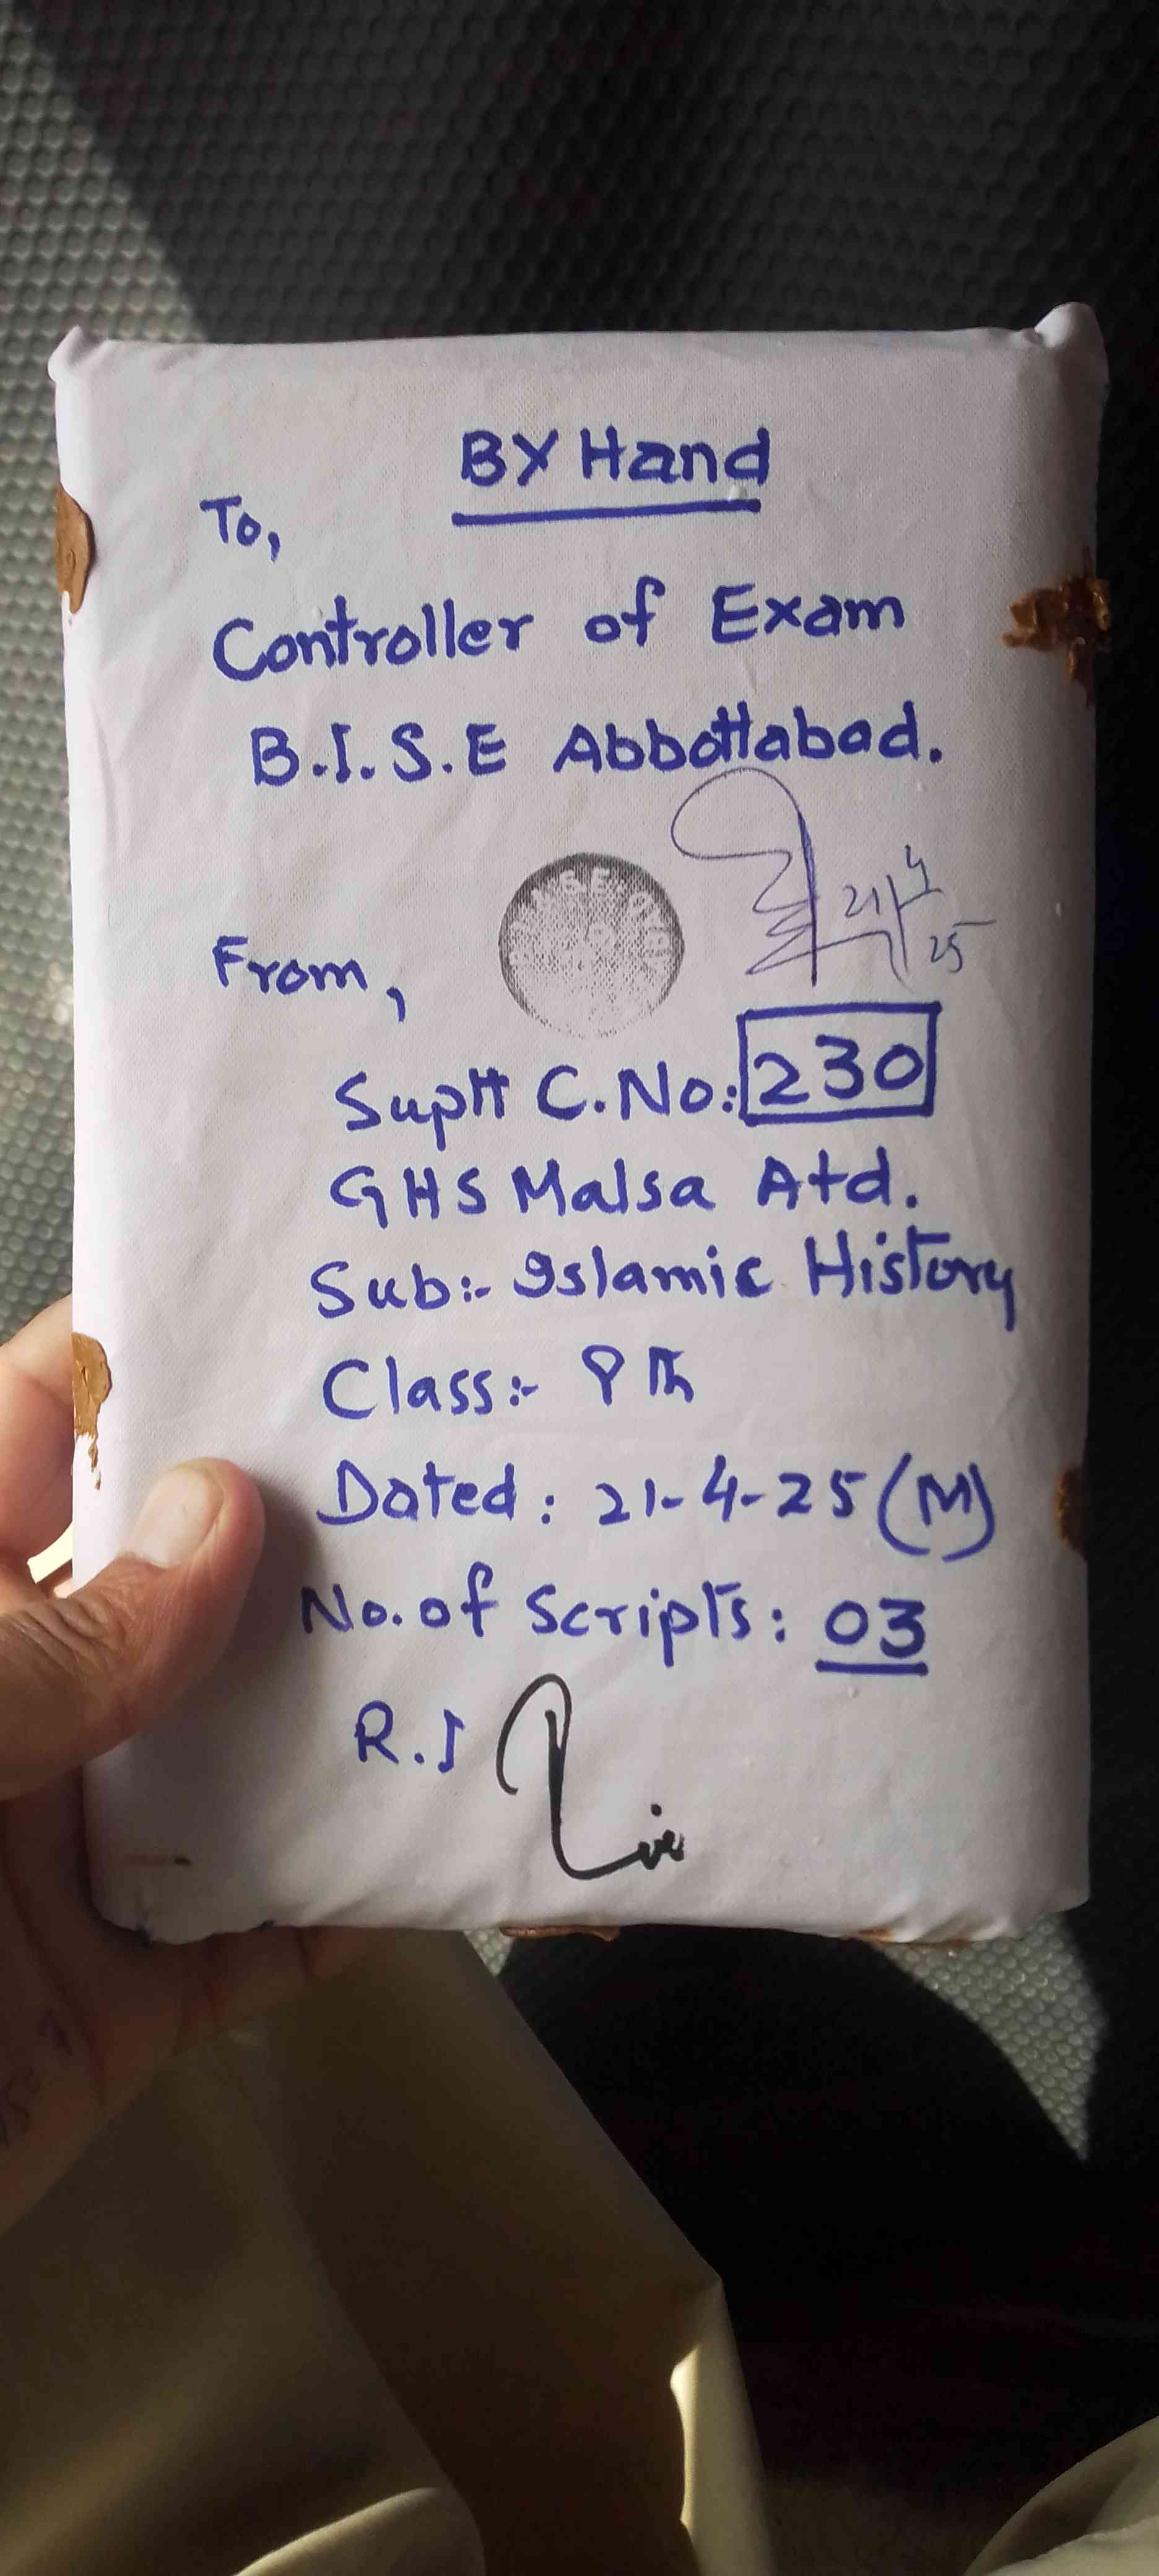 BY Hand
To,
Controller of Exam
B.I.S.E Abbottabad.
21/4/25
From,
Suptt C.No: 230
GHS Malsa Atd.
Sub:- Islamic History
Class:- 9th
Dated: 21-4-25 (M)
No. of Scripts: 03
R.I